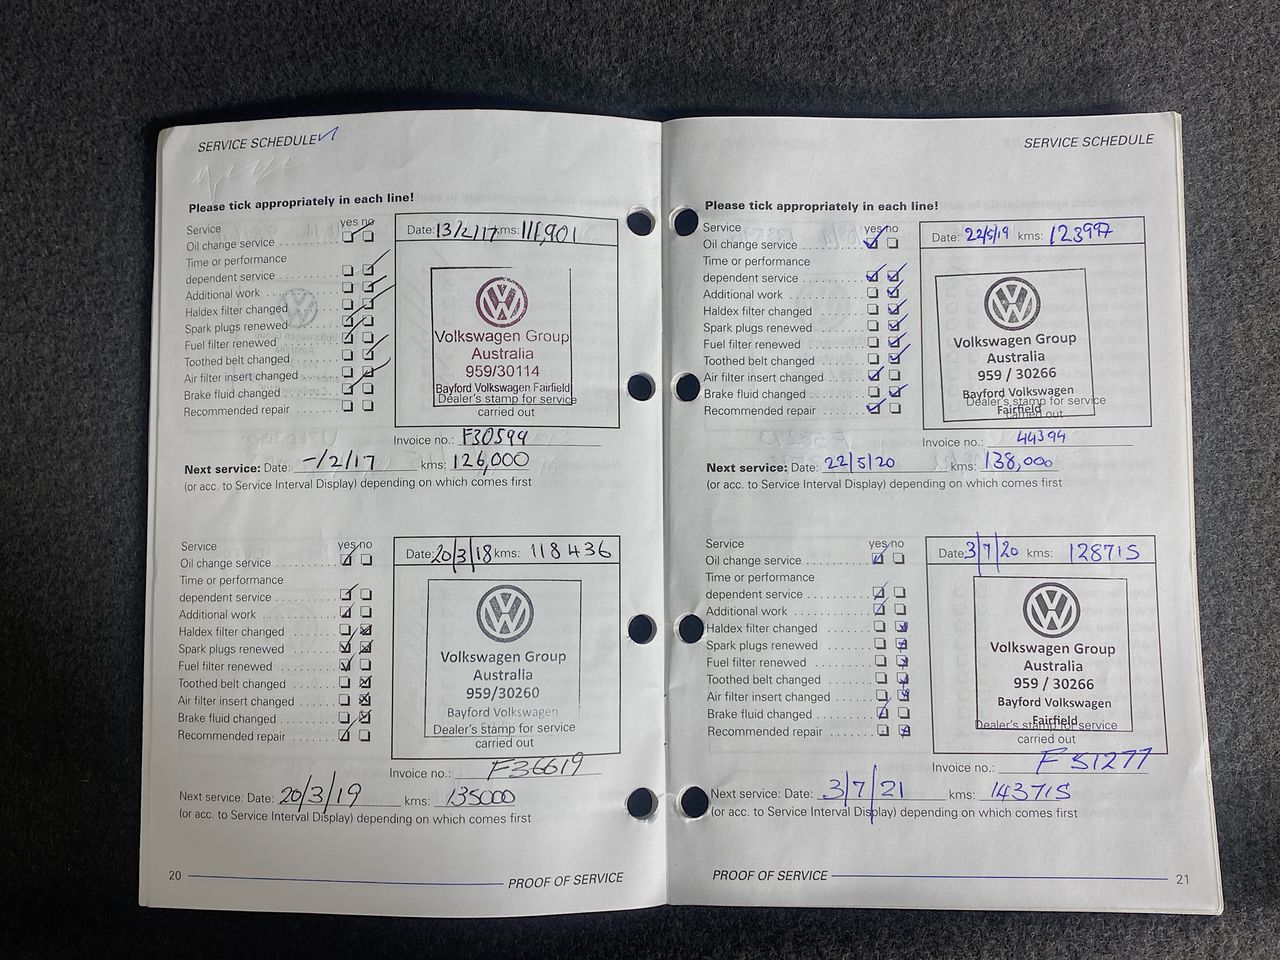 SERVICE SCHEDULE
Please tick appropriately in each line!
Service yes no
Oil change service
Time or performance
dependent service
Additional work
Haldex filter changed
Spark plugs renewed
Fuel filter renewed
Toothed belt changed
Air filter insert changed
Brake fluid changed
Recommended repair
Date: 13/2/17 kms: 111,901
Volkswagen Group
Australia
959/30114
Bayford Volkswagen Fairfield
Dealer's stamp for service
carried out
Invoice no.: F30599
Next service: Date: -/2/17 kms: 126,000
(or acc. to Service Interval Display) depending on which comes first
Service yes no
Oil change service
Time or performance
dependent service
Additional work
Haldex filter changed
Spark plugs renewed
Fuel filter renewed
Toothed belt changed
Air filter insert changed
Brake fluid changed
Recommended repair
Date: 20/3/18 kms: 118436
Volkswagen Group
Australia
959/30260
Bayford Volkswagen
Dealer's stamp for service
carried out
Invoice no.: F36619
Next service: Date: 20/3/19 kms: 135000
(or acc. to Service Interval Display) depending on which comes first
20 PROOF OF SERVICE
SERVICE SCHEDULE
Please tick appropriately in each line!
Service yes no
Oil change service
Time or performance
dependent service
Additional work
Haldex filter changed
Spark plugs renewed
Fuel filter renewed
Toothed belt changed
Air filter insert changed
Brake fluid changed
Recommended repair
Date: 22/5/19 kms: 123997
Volkswagen Group
Australia
959 / 30266
Bayford Volkswagen
Fairfield
Dealer's stamp for service
carried out
Invoice no.: 44394
Next service: Date: 22/5/20 kms: 138,000
(or acc. to Service Interval Display) depending on which comes first
Service yes no
Oil change service
Time or performance
dependent service
Additional work
Haldex filter changed
Spark plugs renewed
Fuel filter renewed
Toothed belt changed
Air filter insert changed
Brake fluid changed
Recommended repair
Date: 3/7/20 kms: 128715
Volkswagen Group
Australia
959 / 30266
Bayford Volkswagen
Fairfield
Dealer's stamp for service
carried out
Invoice no.: F51277
Next service: Date: 3/7/21 kms: 143715
(or acc. to Service Interval Display) depending on which comes first
PROOF OF SERVICE 21